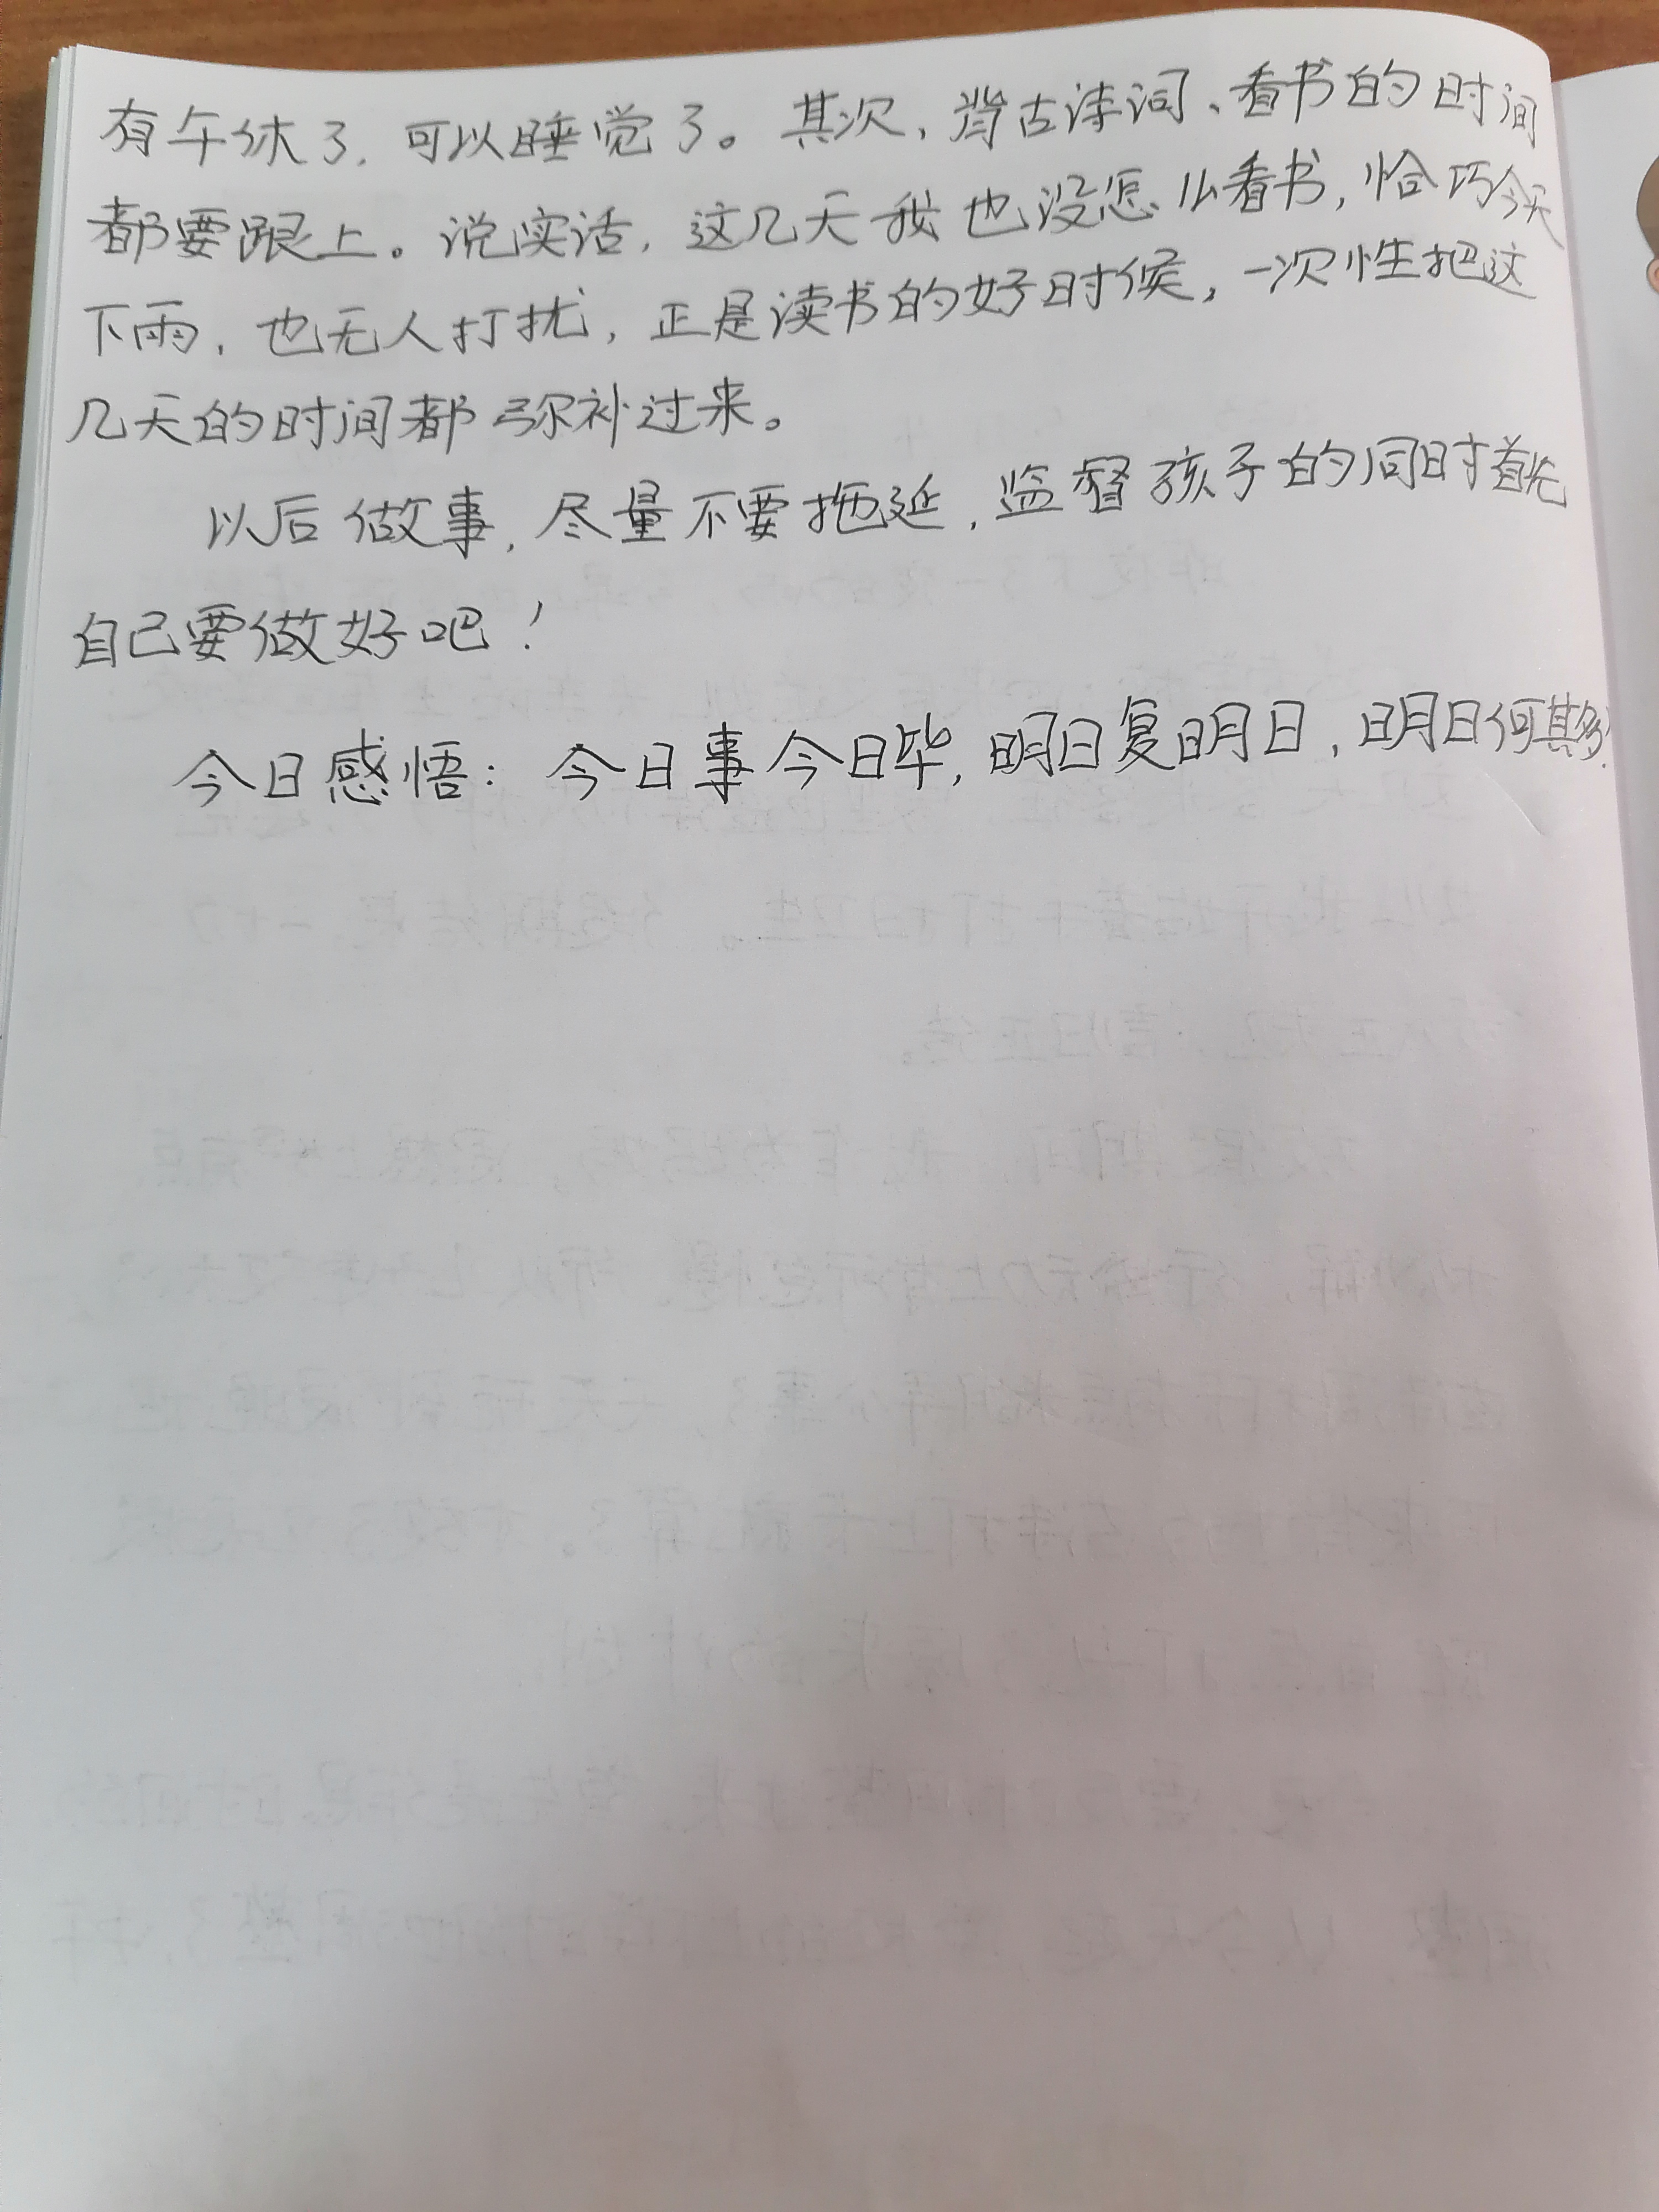 有午休了，可以睡觉了。其次，背古诗词、看书的时间
都要跟上。说实话，这几天我也没怎么看书，恰巧今天
下雨，也无人打扰，正是读书的好时候，一次性把这
几天的时间都弥补过来。
以后做事，尽量不要拖延，监督孩子的同时首先
自己要做好吧！
今日感悟：今日事今日毕，明日复明日，明日何其多！